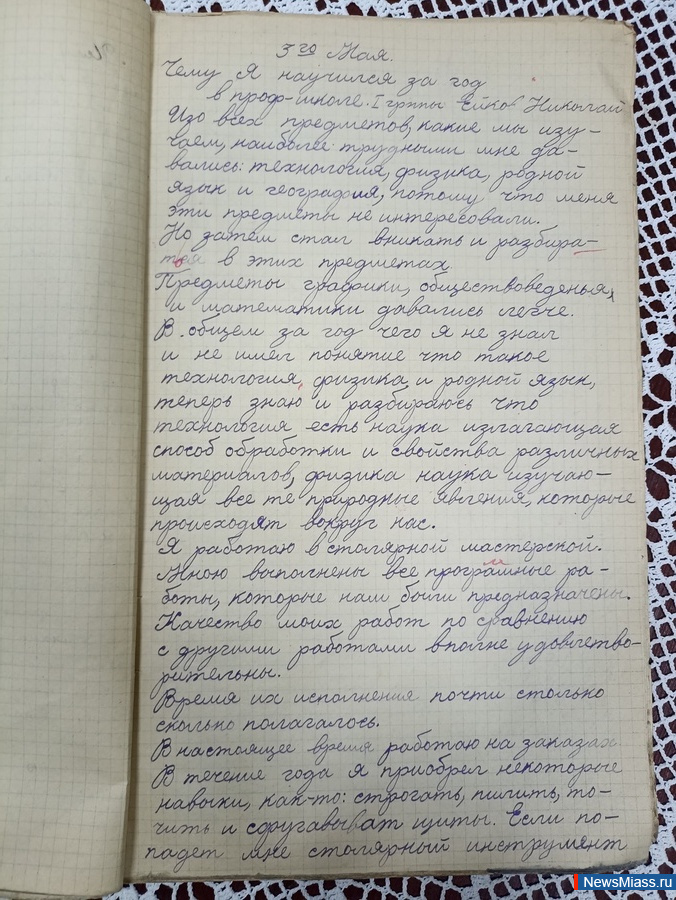 3го Мая.
Чему я научился за год
в проф-школе. I группы Ейков Николай
Изо всех предметов, какие мы изу-
чаем, наиболее трудными мне да-
вались: технология, физика, родной
язык и география, потому что меня
эти предметы не интересовали.
Но затем стал вникать и разбира-
ться в этих предметах
Предметы графики, обществоведенья,
и математики давались легче.
В общем за год чего я не знал
и не имел понятие что такое
технология, физика и родной язык,
теперь знаю и разбираюсь что
технология есть наука излагающая
способ обработки и свойства различных
материалов, физика наука изучаю-
щая все те природные явления, которые
происходят вокруг нас.
Я работаю в столярной мастерской.
Мною выполнены все програмные ра-
боты, которые нам были предназначены.
Качество моих работ по сравнению
с другими работами вполне удовлетво-
рительны.
Время их исполнения почти столько
сколько полагалось.
В настоящее время работаю на заказах.
В течение года я приобрел некоторые
навыки, как-то: строгать, пилить, то-
чить и сфуговыват щиты. Если по-
падет мне столярный инструмент
NewsMiass.ru